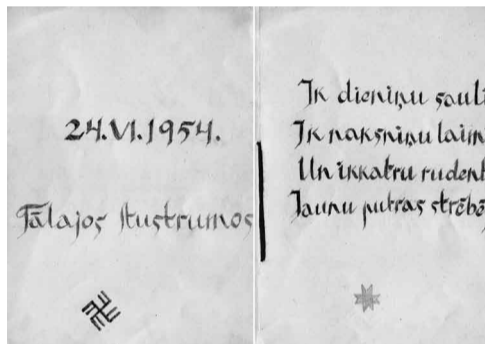 24.VI.1954.
Tālajos Austrumos
Ik dieniņu sauli
Ik naksniņu laim
Un ikkatru rudent
Jaunu putras strēbēj